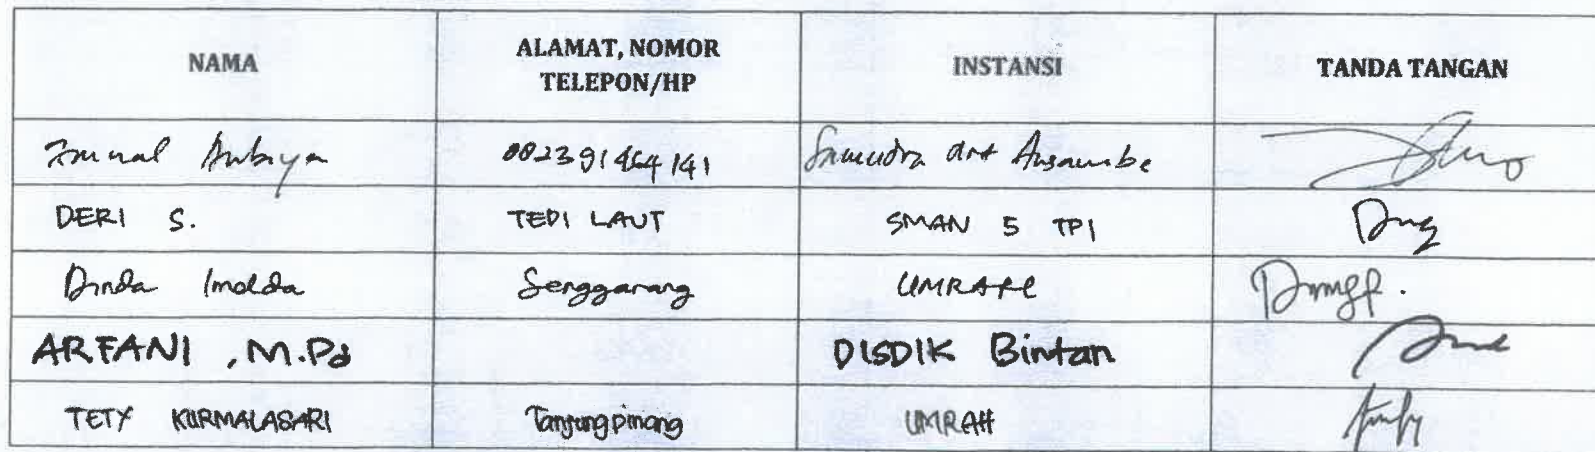 NAMA ALAMAT, NOMOR INSTANSI TANDA TANGAN
TELEPON/HP
Aubrya 082391464141 Samudra Art Ansambe
DERI S. TEDI LAUT SMAN 5 TPI
Dinda Imelda Senggarang UMRAH
ARFANI, M.Pd DISDIK Bintan
TETY KURMALASARI Tanjungpinang UMRAH